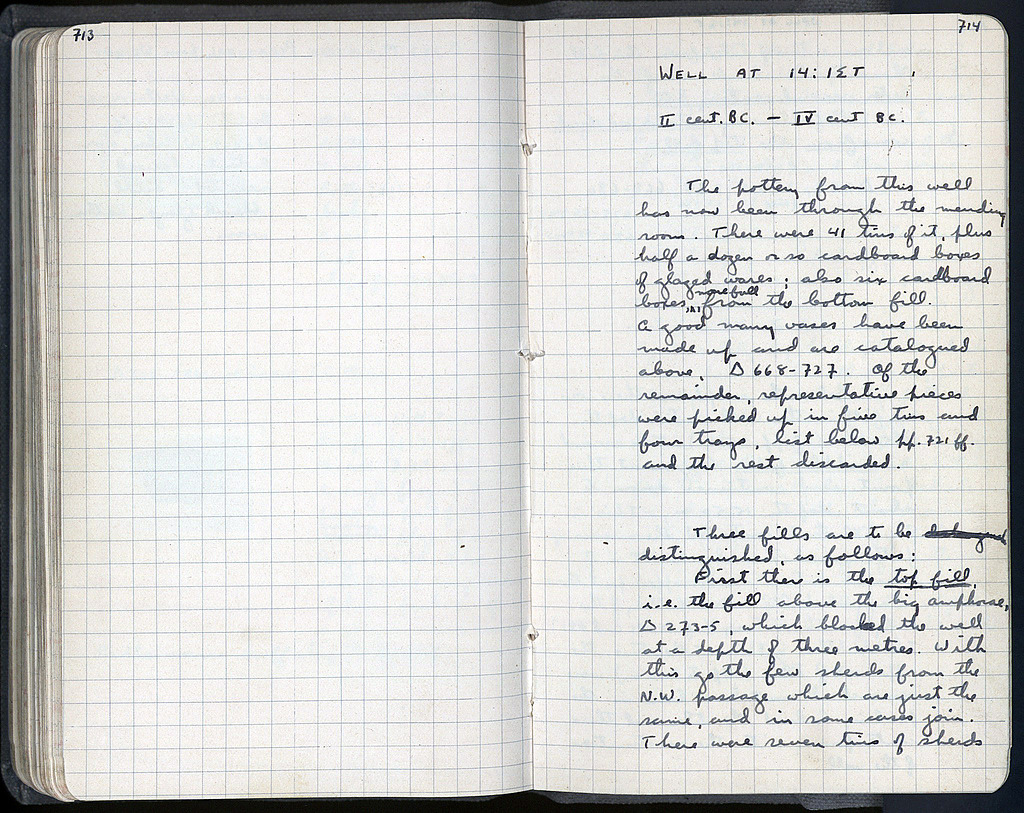 713
714
WELL AT 14:1ΣT
II cent. BC. – IV cent BC.
The pottery from this well
has now been through the mending
room. There were 41 tins of it, plus
half a dozen or so cardboard boxes
of glazed wares; also six cardboard
more full
boxes from the bottom fill.
A good many vases have been
made up and are catalogued
above, Δ 668-727. Of the
remainder, representative pieces
were picked up in five tins and
four trays, list below pp. 721 ff.
and the rest discarded.
Three fills are to be
distinguished, as follows:
First there is the top fill,
i.e. the fill above the big amphorae,
Δ 273-5, which blocked the well
at a depth of three metres. With
this go the few sherds from the
N.W. passage which are just the
same, and in some cases join.
There were seven tins of sherds